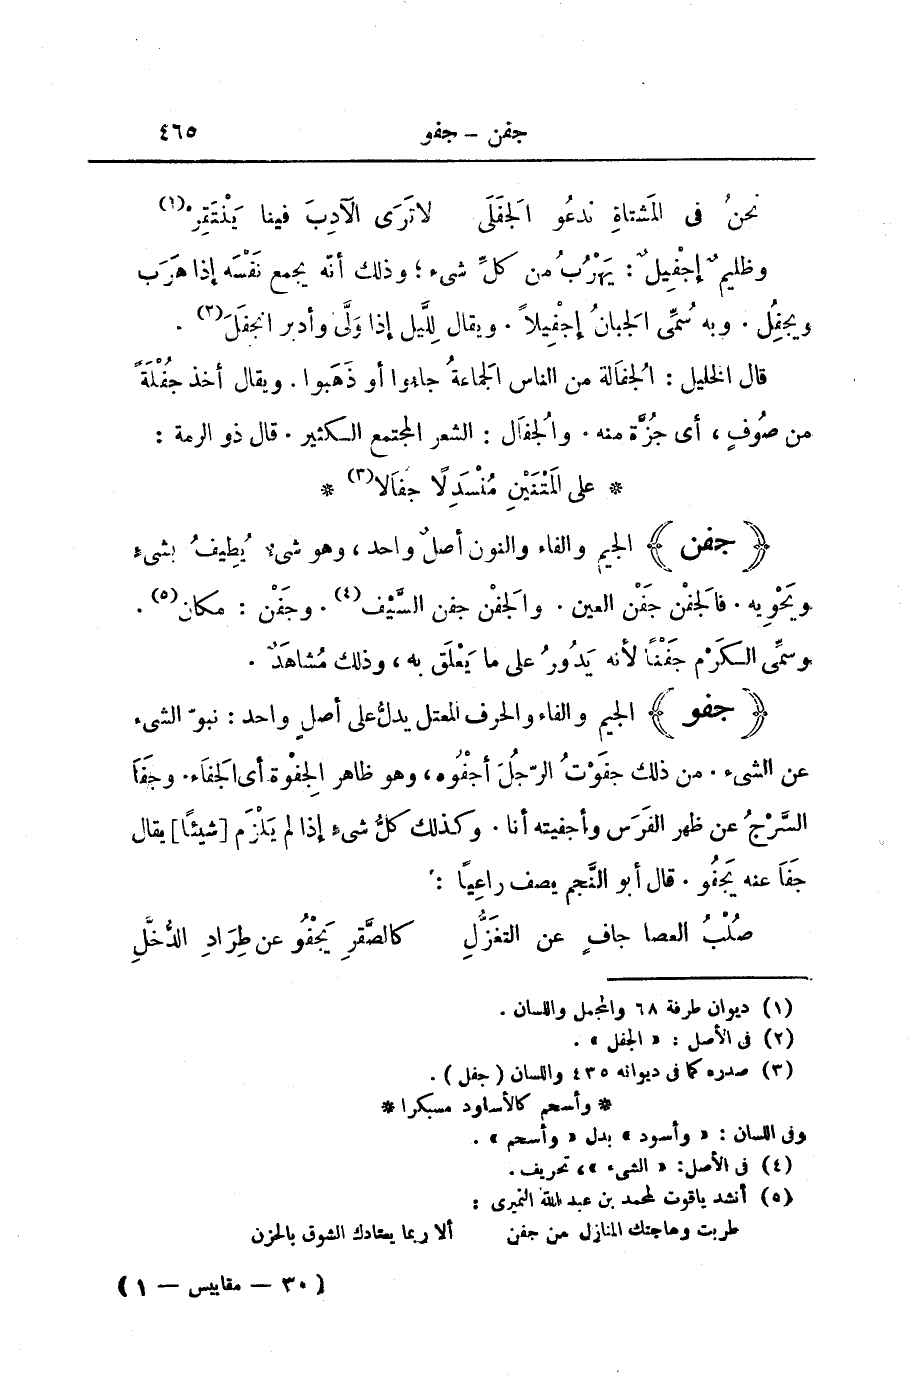 جفن – جفو ٤٦٥
نحنُ فى المَشتاةِ ندعُو الجَفَلَى لا تَرَى الآدِبَ فينا يَنْتَقِرْ(١)
وظليم إجْفِيلٌ : يَهْرُبُ من كلِّ شىء ؛ وذلك أنّه يجمع نَفْسَه إذا هَرَب
ويجفِل . وبه سُمِّى الجبانُ إجْفِيلاً . ويقال لِلَّيل إذا وَلَّى وأدبر انْجفَلَ(٢) .
قال الخليل : الجُفَالة من الناس الجماعةُ جاءوا أو ذَهَبوا . ويقال أخذ جُفْلَةً
من صُوفٍ ، أى جُزَّة منه . والجُفَال : الشعر المجتمع الكثير . قال ذو الرمة :
* على المَتْنَيْنِ مُنْسَدِلًا جُفَالا(٣) *
﴿ جفن ﴾ الجيم والفاء والنون أصلٌ واحد ، وهو شىءٌ يُطِيفُ بشىءٍ
ويَحْوِيه . فالجَفْن جَفْن العين . والجَفْن جفن السَّيْف(٤) . وجَفْن : مكان(٥) .
وسمِّى الكرْم جَفْنًا لأنه يَدُورُ على ما يَعْلَق به ، وذلك مُشاهَدٌ .
﴿ جفو ﴾ الجيم والفاء والحرف المعتل يدلّ على أصلٍ واحد : نبوّ الشىء
عن الشىء . من ذلك جفَوْتُ الرّجُلَ أجْفُوه ، وهو ظاهر الجِفْوة أى الجفَاء . وجَفَا
السَّرْجُ عن ظهر الفَرَس وأجفيته أنا . وكذلك كلُّ شىءٍ إذا لم يَلْزَم [شيئًا] يقال
جَفَا عنه يَجْفُو . قال أبو النَّجم يصف راعِيًا :
صُلْبُ العصا جافٍ عن التغزُّلِ كالصَّقرِ يَجْفُو عن طِرَادِ الدُّخَّلِ
(١) ديوان طرفة ٦٨ والمجمل واللسان .
(٢) فى الأصل : « الجفل » .
(٣) صدره كما فى ديوانه ٤٣٥ واللسان ( جفل ) .
* وأسحم كالأساود مسبكرا *
وفى اللسان : « وأسود » بدل « وأسحم » .
(٤) فى الأصل: « الشىء »، تحريف .
(٥) أنشد ياقوت لمحمد بن عبد الله النميرى :
طربت وهاجتك المنازل من جفن ألا ربما يعتادك الشوق بالحزن
( ٣٠ – مقاييس – ١ )